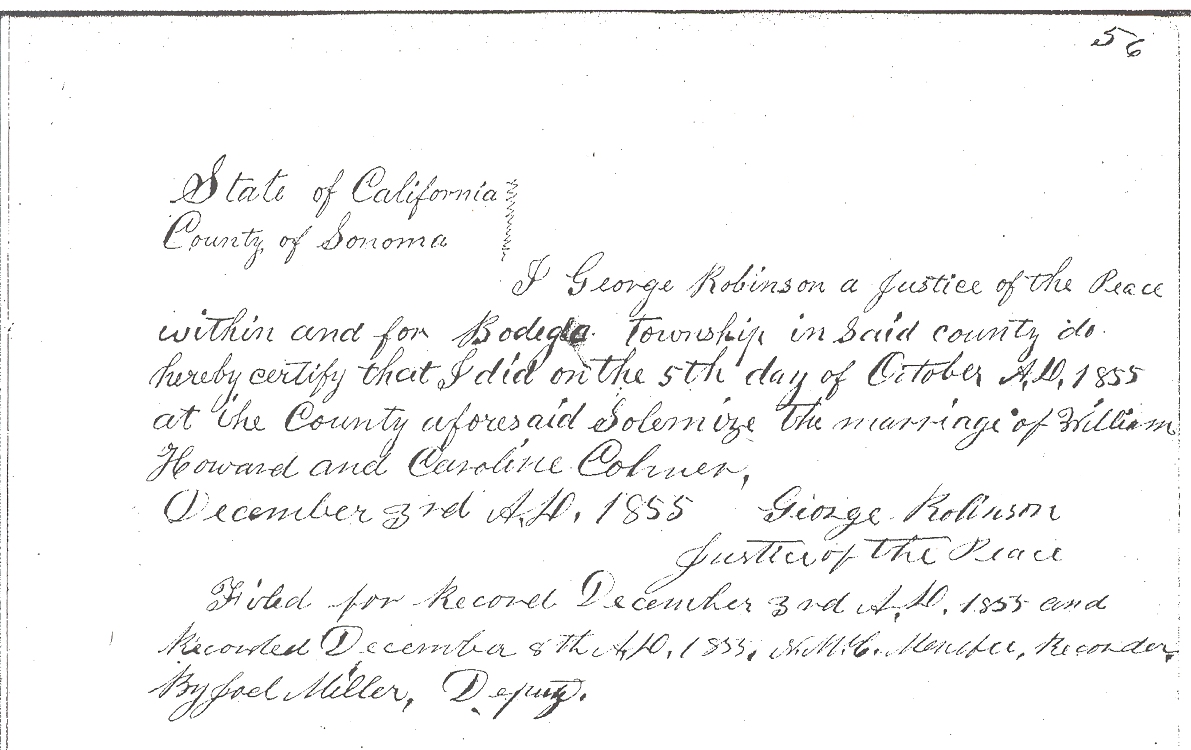 56
State of California
County of Sonoma
I George Robinson a Justice of the Peace
within and for Bodega Township in said county do
hereby certify that I did on the 5th day of October A.D. 1855
at the County aforesaid Solemize the marriage of William
Howard and Caroline
December 3rd A.D. 1855 George Robinson
Justice of the Peace
Filed for Record December 3rd A.D. 1855 and
Recorded December 8th A.D. 1855, Recorder,
By Joel Miller, Deputy.